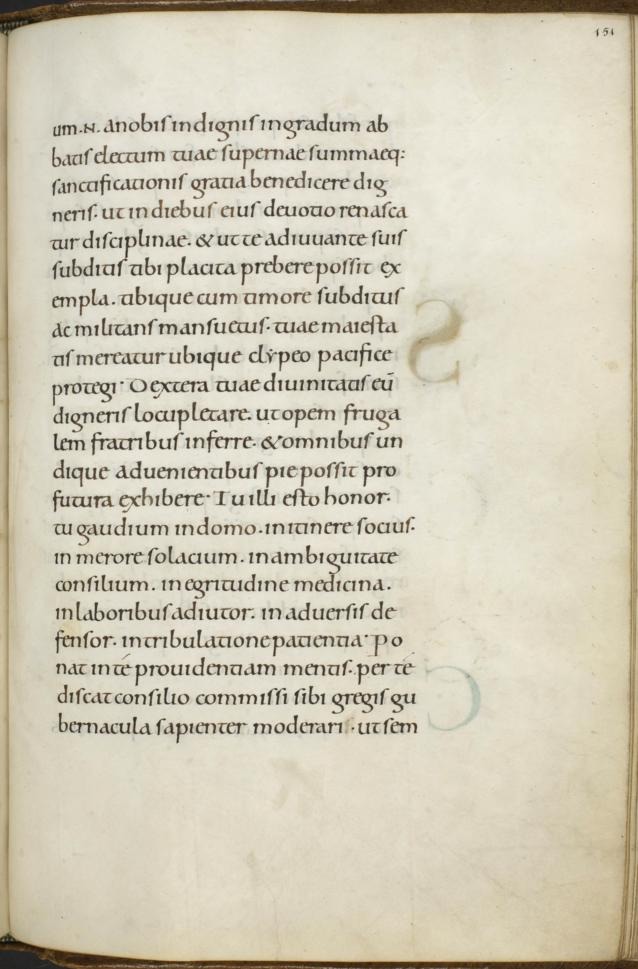 151
um .N. anobis indignis ingradum ab
batis electum tuae supernae summaeq:
sanctificationis gratia benedicere dig
neris. ut in diebus eius deuotio renasca
tur disciplinae. & ut te adiuuante suis
subditis tibi placita prebere possit ex
empla. tibique cum timore subditus
ac militans mansuetus. tuae maiesta
tis mereatur ubique clẏpeo pacifice
protegi. Dextera tuae diuinitatis eū
digneris locupletare. ut opem fruga
lem fratribus inferre. & omnibus un
dique aduenientibus pie possit pro
futura exhibere. Tu illi esto honor.
tu gaudium in domo. in itinere socius.
in merore solacium. in ambiguitate
consilium. in egritudine medicina.
in laboribus adiutor. in aduersis de
fensor. in tribulatione patientia. po
nat in te prouidentiam mentis. per te
discat consilio commissi sibi gregis gu
bernacula sapienter moderari. ut sem